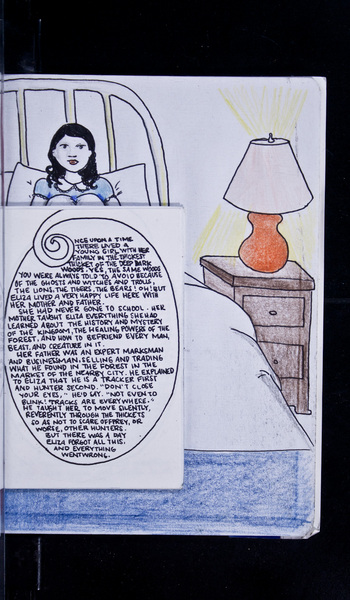 ONCE UPON A TIME
THERE LIVED A
YOUNG GIRL WITH HER
FAMILY IN THE THICKEST
THICKET OF THE DEEP DARK
WOODS. YES, THE SAME WOODS
YOU WERE ALWAYS TOLD TO AVOID BECAUSE
OF THE GHOSTS AND WITCHES AND TROLLS,
THE LIONS, THE TIGERS, THE BEARS! OH! BUT
ELIZA LIVED A VERY HAPPY LIFE HERE WITH
HER MOTHER AND FATHER.
SHE HAD NEVER GONE TO SCHOOL. HER
MOTHER TAUGHT ELIZA EVERYTHING SHE HAD
LEARNED ABOUT THE HISTORY AND MYSTERY
OF THE KINGDOM, THE HEALING POWERS OF THE
FOREST, AND HOW TO BEFRIEND EVERY MAN,
BEAST, AND CREATURE IN IT.
HER FATHER WAS AN EXPERT MARKSMAN
AND BUSINESSMAN, SELLING AND TRADING
WHAT HE FOUND IN THE FOREST IN THE
MARKETS OF THE NEARBY CITY. HE EXPLAINED
TO ELIZA THAT HE IS A TRACKER FIRST
AND HUNTER SECOND. "DON'T CLOSE
YOUR EYES," HE'D SAY. "NOT EVEN TO
BLINK! TRACKS ARE EVERYWHERE."
HE TAUGHT HER TO MOVE SILENTLY,
REVERENTLY THROUGH THE THICKETS
SO AS NOT TO SCARE OFF PREY, OR
WORSE, OTHER HUNTERS.
BUT THERE WAS A DAY
ELIZA FORGOT ALL THIS.
AND EVERYTHING
WENT WRONG.